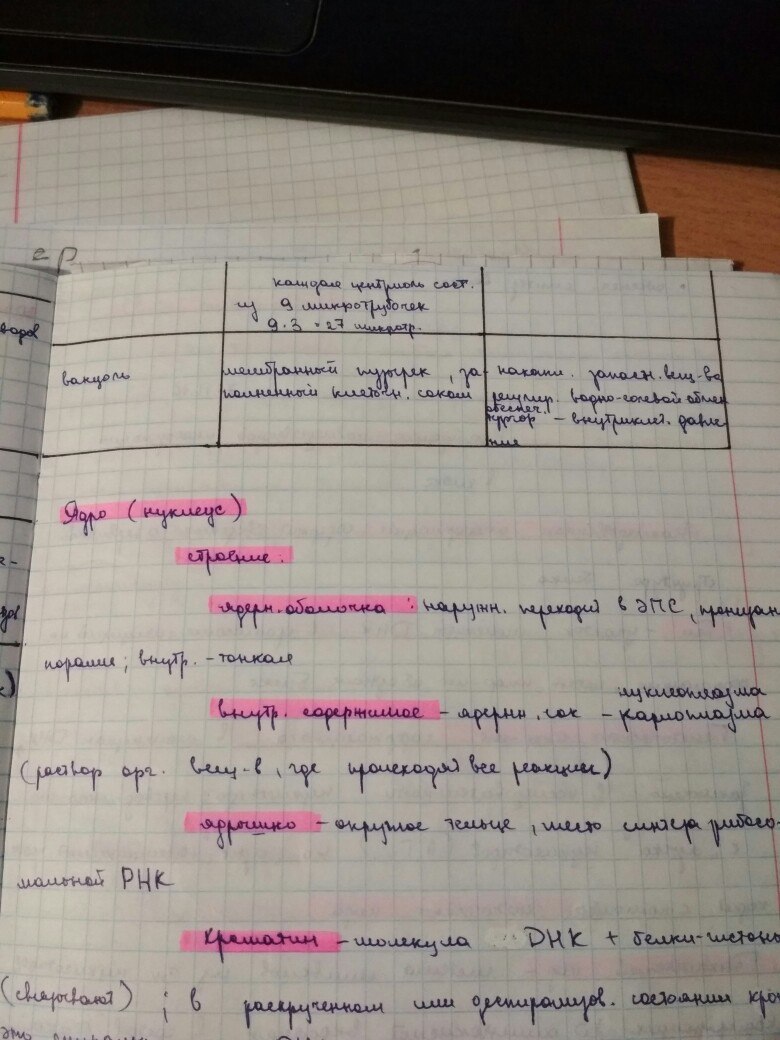 каждая центриоль сост.
из 9 микротрубочек
9·3 = 27 микротр.
вакуоль
мембранный пузырек, за-
полненный клеточн. соком
накопл. запасн. вещ-ва
регулир. водно-солевой обмен
обеспеч.
тургор – внутриклет. давле
ние
Ядро (нуклеус)
строение:
ядерн. оболочка: наружн. переходит в ЭПС,
порами; внутр. – тонкая
нуклеоплазма
внутр. содержимое – ядерн. сок – кариоплазма
(раствор орг. вещ-в, где происходят все реакции)
ядрышко – округлое тельце, место синтеза рибосо-
мальной РНК
Хроматин – молекула ДНК + белки-гистоны
(скручивают); в раскрученном или деспирализов. состоянии
это